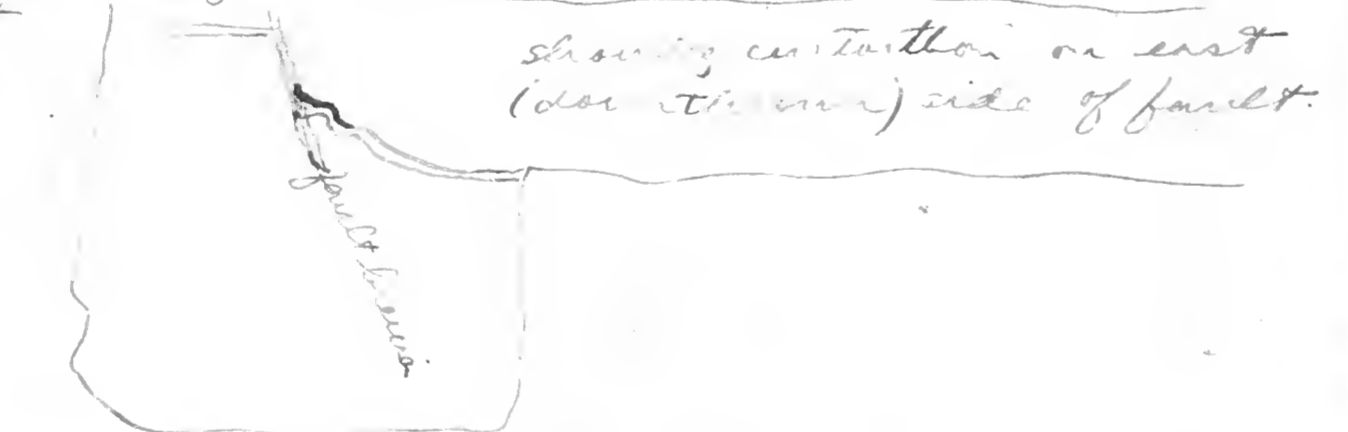 showing contortion on east
(downthrown) side of fault.
fault breccia